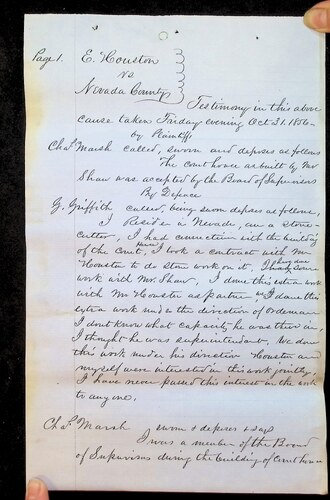 Page 1. E. Houston
vs
Nevada County
Testimony in this above
cause taken Friday evening Oct. 31. 1856-
by Plaintiff
Chas. Marsh called, sworn and deposes as follows
The court house as built by Mr
Shaw was accepted by the Board of Supervisors
By Defence
G. Griffith called, being sworn deposes as follows,
I Reside in Nevada, am a stone
cutter, I had connection with the building
of the Court House, I took a contract with Mr
Houston to do stone work on it, I have done
work with Mr. Shaw, I done this extra work
with Mr Houston as partner I done this
extra work under the direction of
I dont know what capacity he was there in
I thought he was superintendant, We done
this work under his direction Houston and
myself were interested in this work jointly,
I have never passed this interest in the work
to anyone,
Chas. Marsh sworn & deposes & says
I was a member of the Board
of Supervisors during the building of Court house